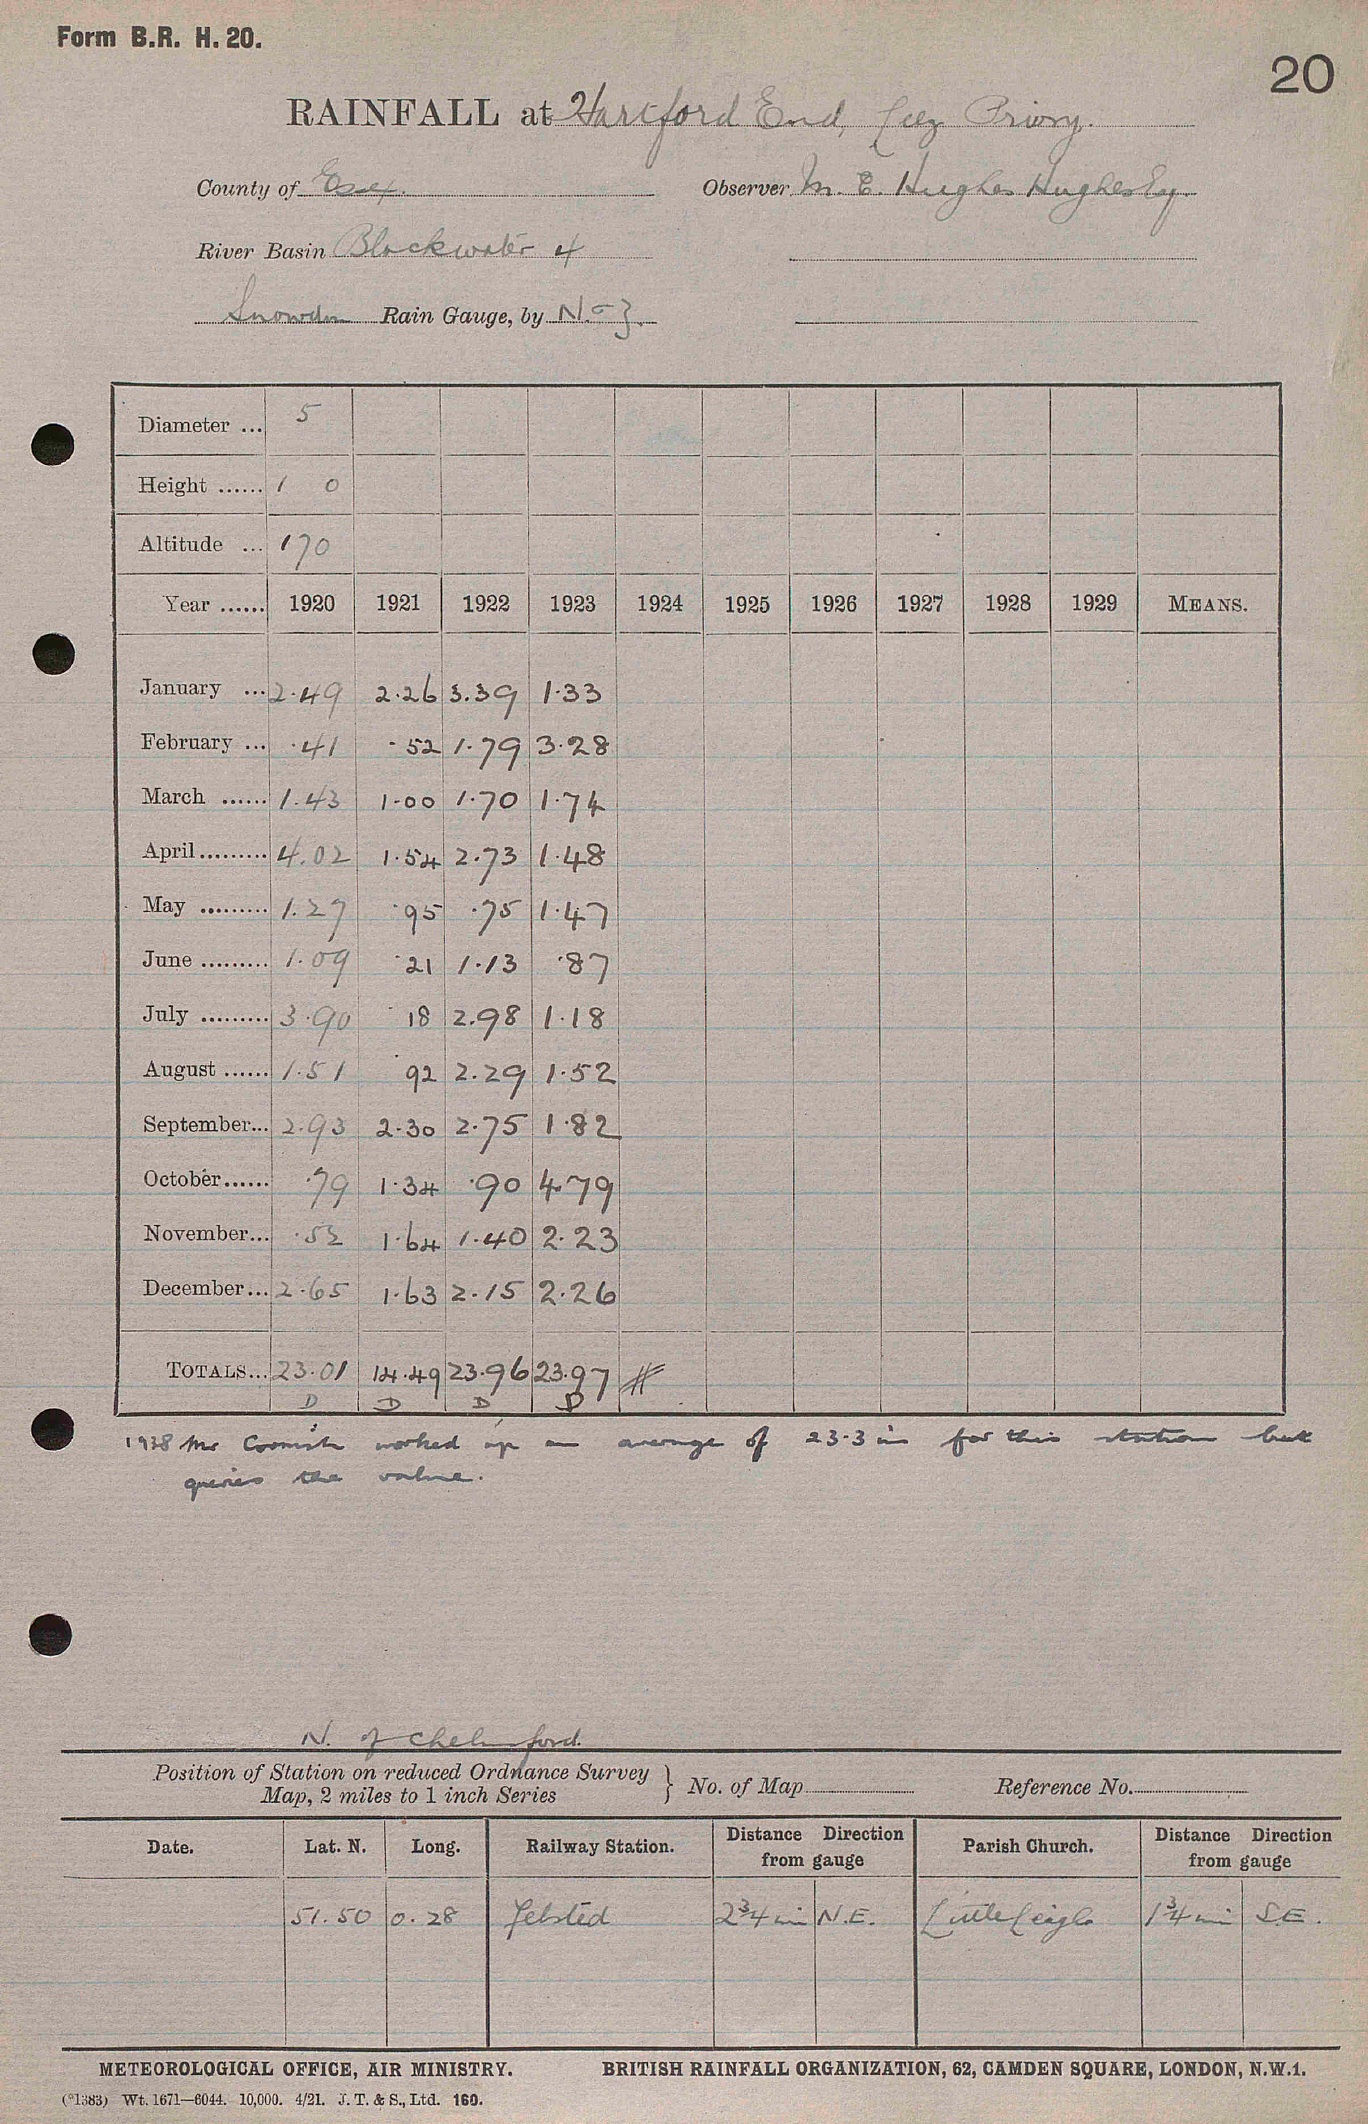 Form B.R. H. 20.
20
RAINFALL at Hartford End, Leez Priory.
County of Essex. Observer M. E. Hughes Hughes Esq.
River Basin Blackwater 4
Snowdon Rain Gauge, by N. & Z.
Diameter ... 5
Height ...... 1 0
Altitude ... 170
Year ...... 1920 1921 1922 1923 1924 1925 1926 1927 1928 1929 MEANS.
January ... 2.49 2.26 3.39 1.33
February ... .41 .52 1.79 3.28
March ...... 1.43 1.00 1.70 1.74
April ......... 4.02 1.54 2.73 1.48
May ......... 1.27 .95 .75 1.47
June ......... 1.09 .21 1.13 .87
July ......... 3.90 .18 2.98 1.18
August ...... 1.51 .92 2.29 1.52
September... 2.93 2.30 2.75 1.82
October...... .79 1.34 .90 4.79
November... .52 1.64 1.40 2.23
December... 2.65 1.63 2.15 2.26
TOTALS... 23.01 14.49 23.96 23.97 #
D D D D
1938 Mr Cornish worked up an average of 23.3 in for this station but
queries the value.
N. of Chelmsford.
Position of Station on reduced Ordnance Survey
Map, 2 miles to 1 inch Series } No. of Map Reference No.
Date. Lat. N. Long. Railway Station. Distance Direction from gauge Parish Church. Distance Direction from gauge
51.50 0.28 Felsted 2¾ mi N.E. Little Leighs 1¾ mi S.E.
METEOROLOGICAL OFFICE, AIR MINISTRY. BRITISH RAINFALL ORGANIZATION, 62, CAMDEN SQUARE, LONDON, N.W.1.
(*1383) Wt. 1671—6044. 10,000. 4/21. J. T. & S., Ltd. 160.